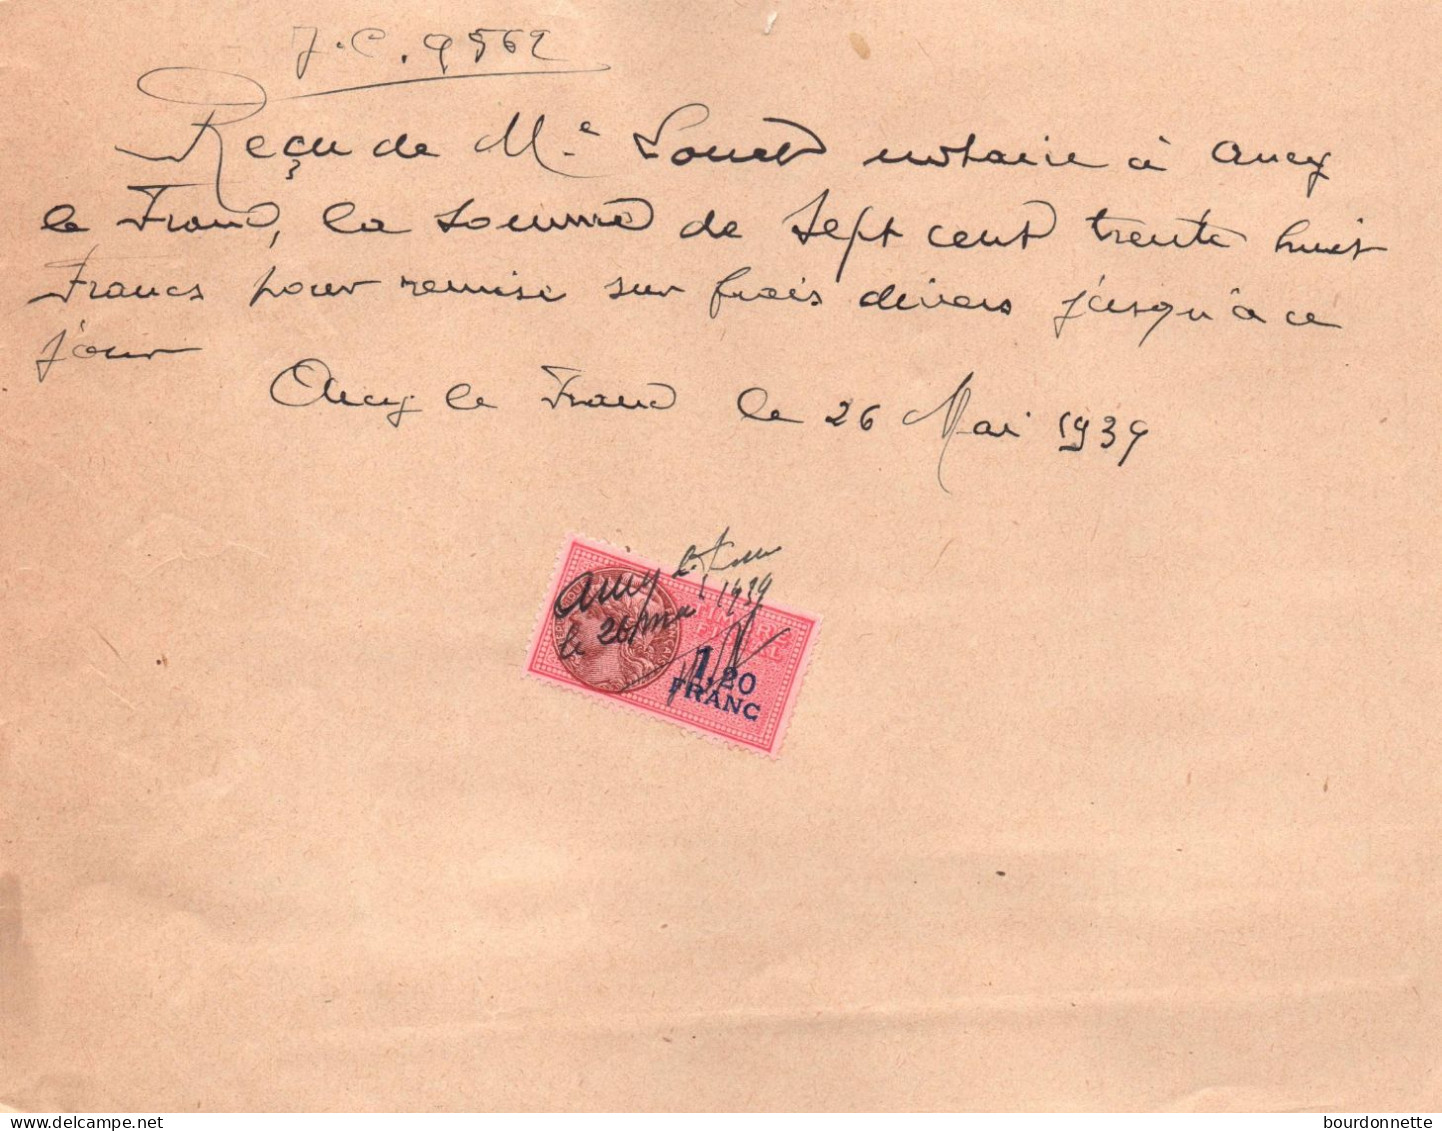 J.C. 9562
Reçu de Me Louet notaire à Ancy
le Franc, la somme de Sept cent trente huit
Francs pour remise sur frais divers jusqu'à ce
jour
Ancy le Franc le 26 Mai 1939
Ancy le Franc
le 26 mai 1939
TIMBRE
FISCAL
1,20
FRANC
bourdonnette